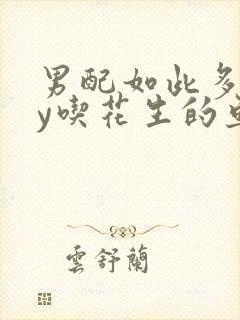 男配如此多
y喫花生的
雲舒蘭